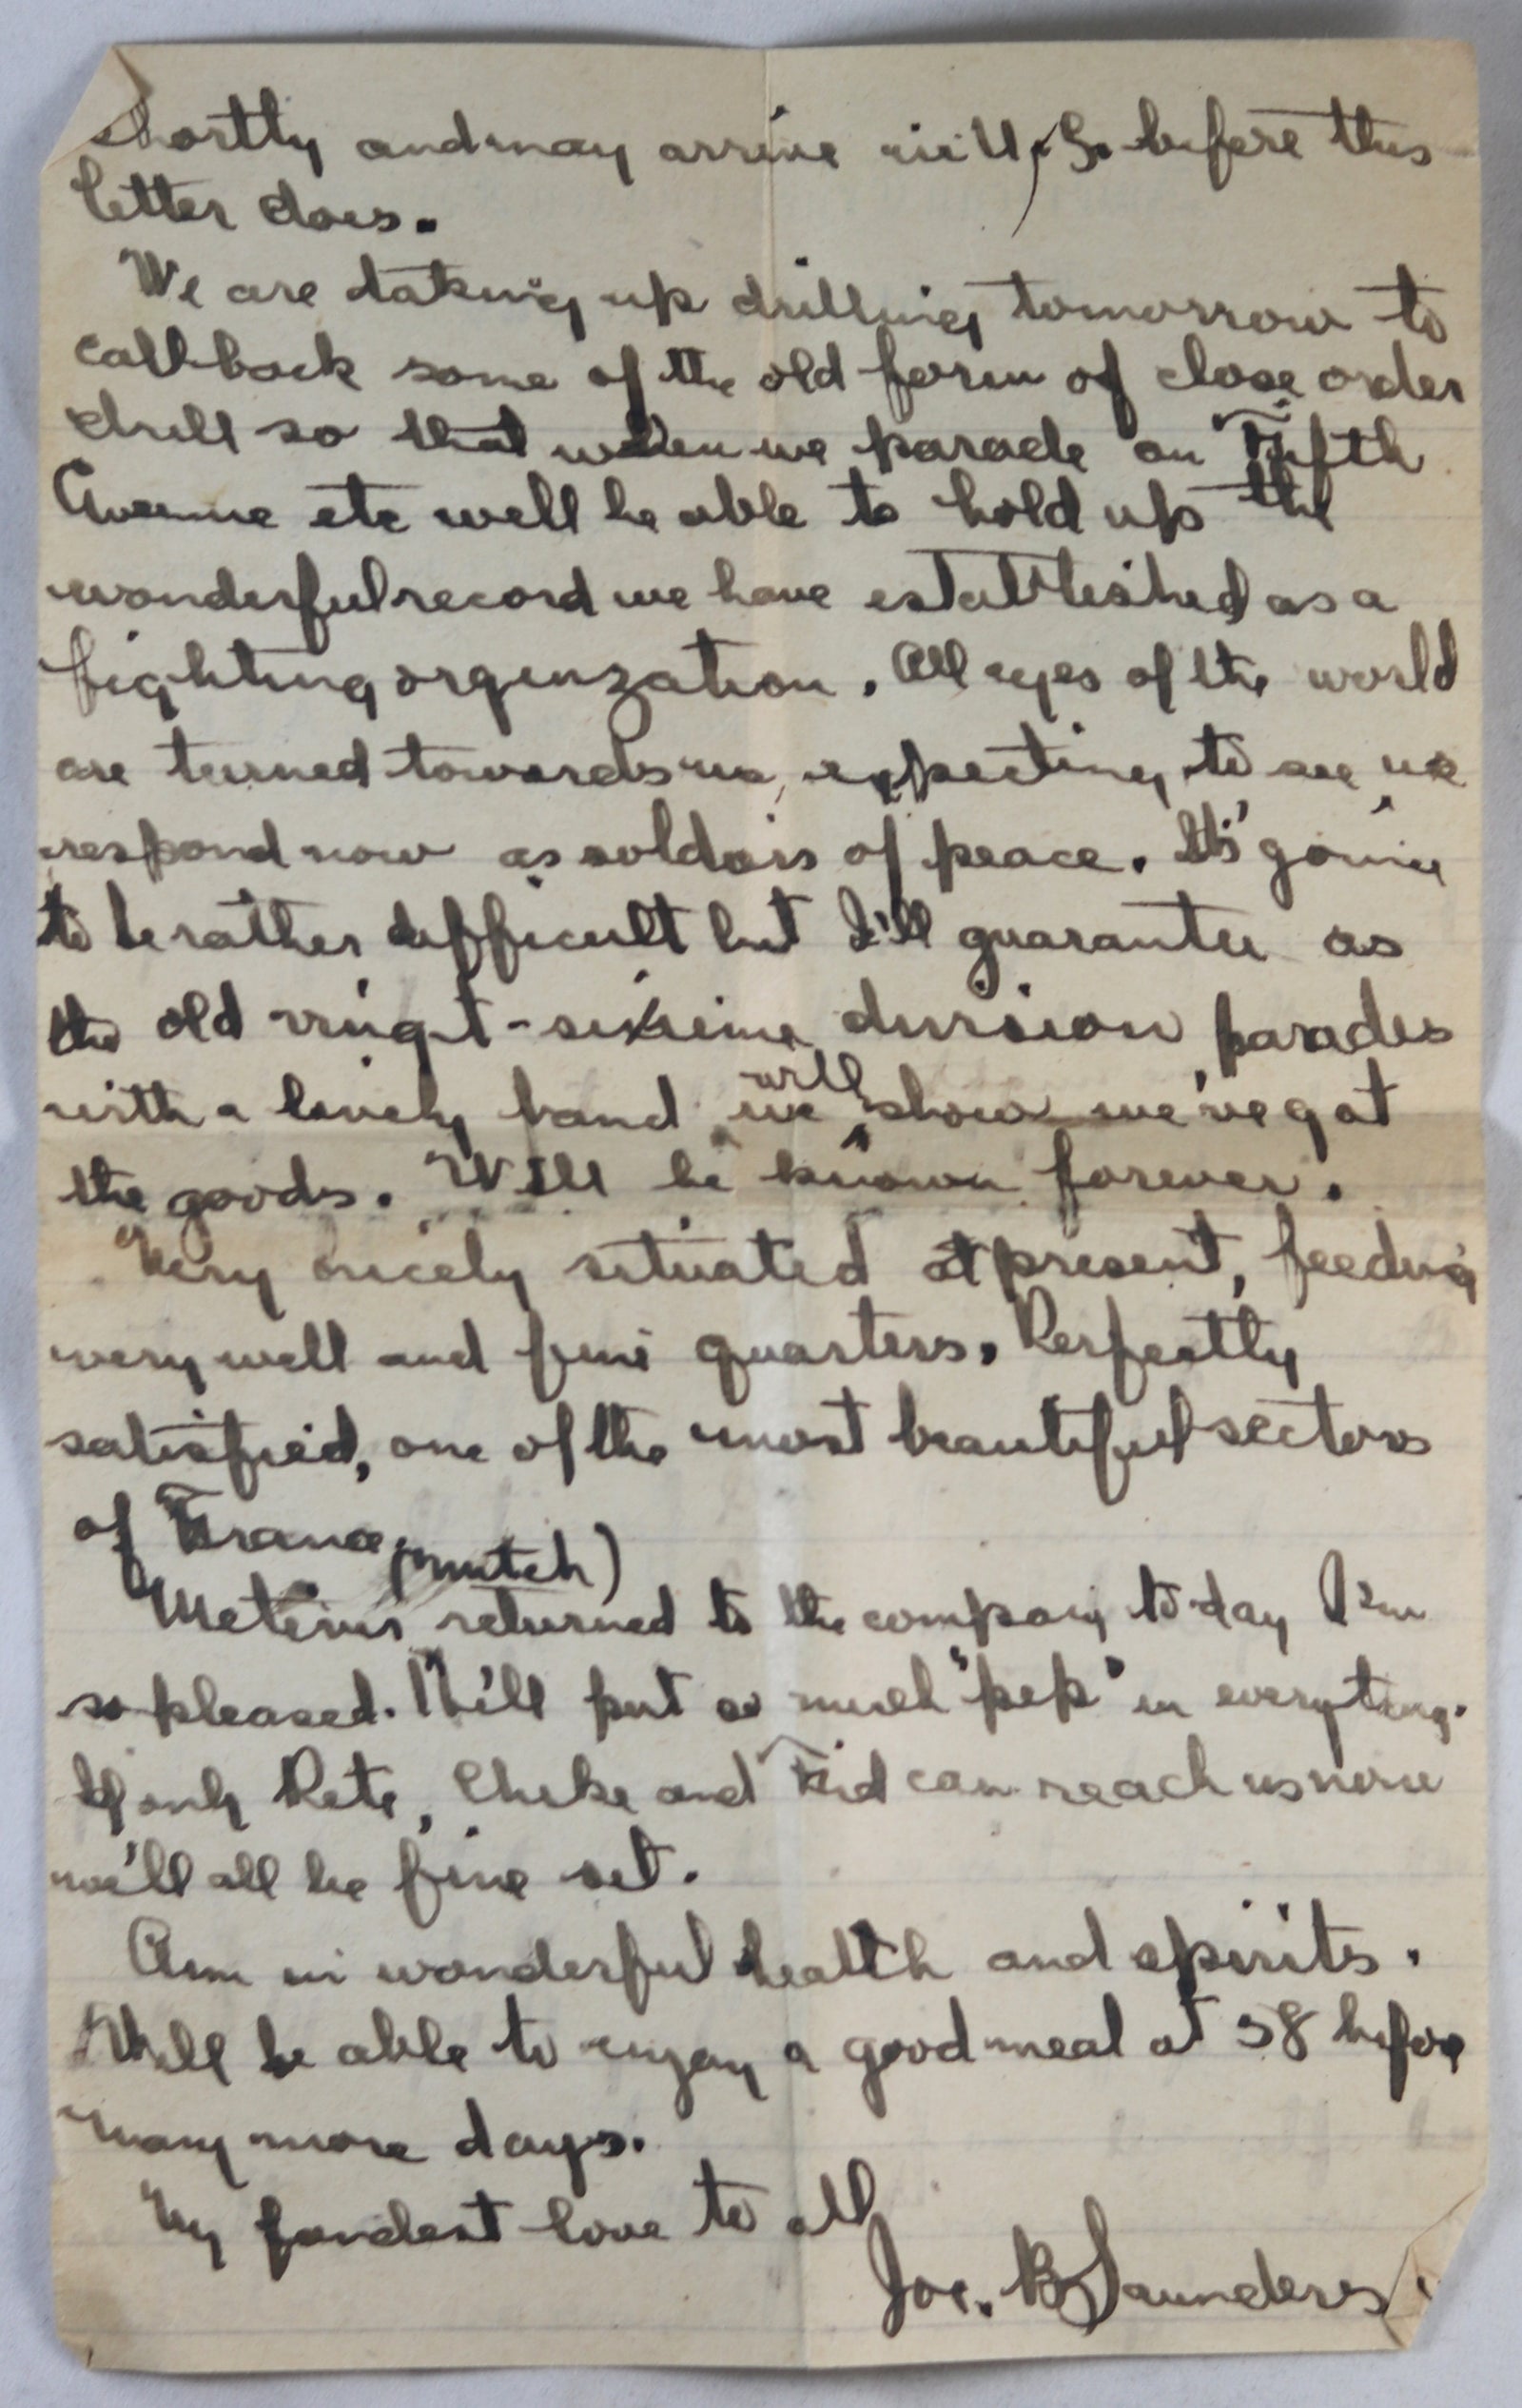 shortly and may arrive in U.S. before this
letter does.
We are taking up drilling tomorrow to
call back some of the old form of close order
drill so that when we parade on Fifth
Avenue etc well be able to hold up the
wonderful record we have established as a
fighting orgenzation. All eyes of the world
are turned towards us, expecting to see us
respond now as soldois of peace. It's going
to be rather difficult but I'll guarantee as
the old vingt-sixieme division parades
with a lively band we will show we've got
the goods. Will be known forever.
Very nicely situated at present, feeding
very well and fine quarters. Perfectly
satisfied, one of the most beautiful sectors
of France.
(mutch)
Metivier returned to the company to-day I'm
so pleased. He'll put so much "pep" in everyting.
If only Pete, Cheke and Kid can reach us now
we'll all be fine set.
Am in wonderful health and spirits.
Will be able to enjoy a good meal at 38 before
many more days.
My fondest love to all
Jos. B Saunders